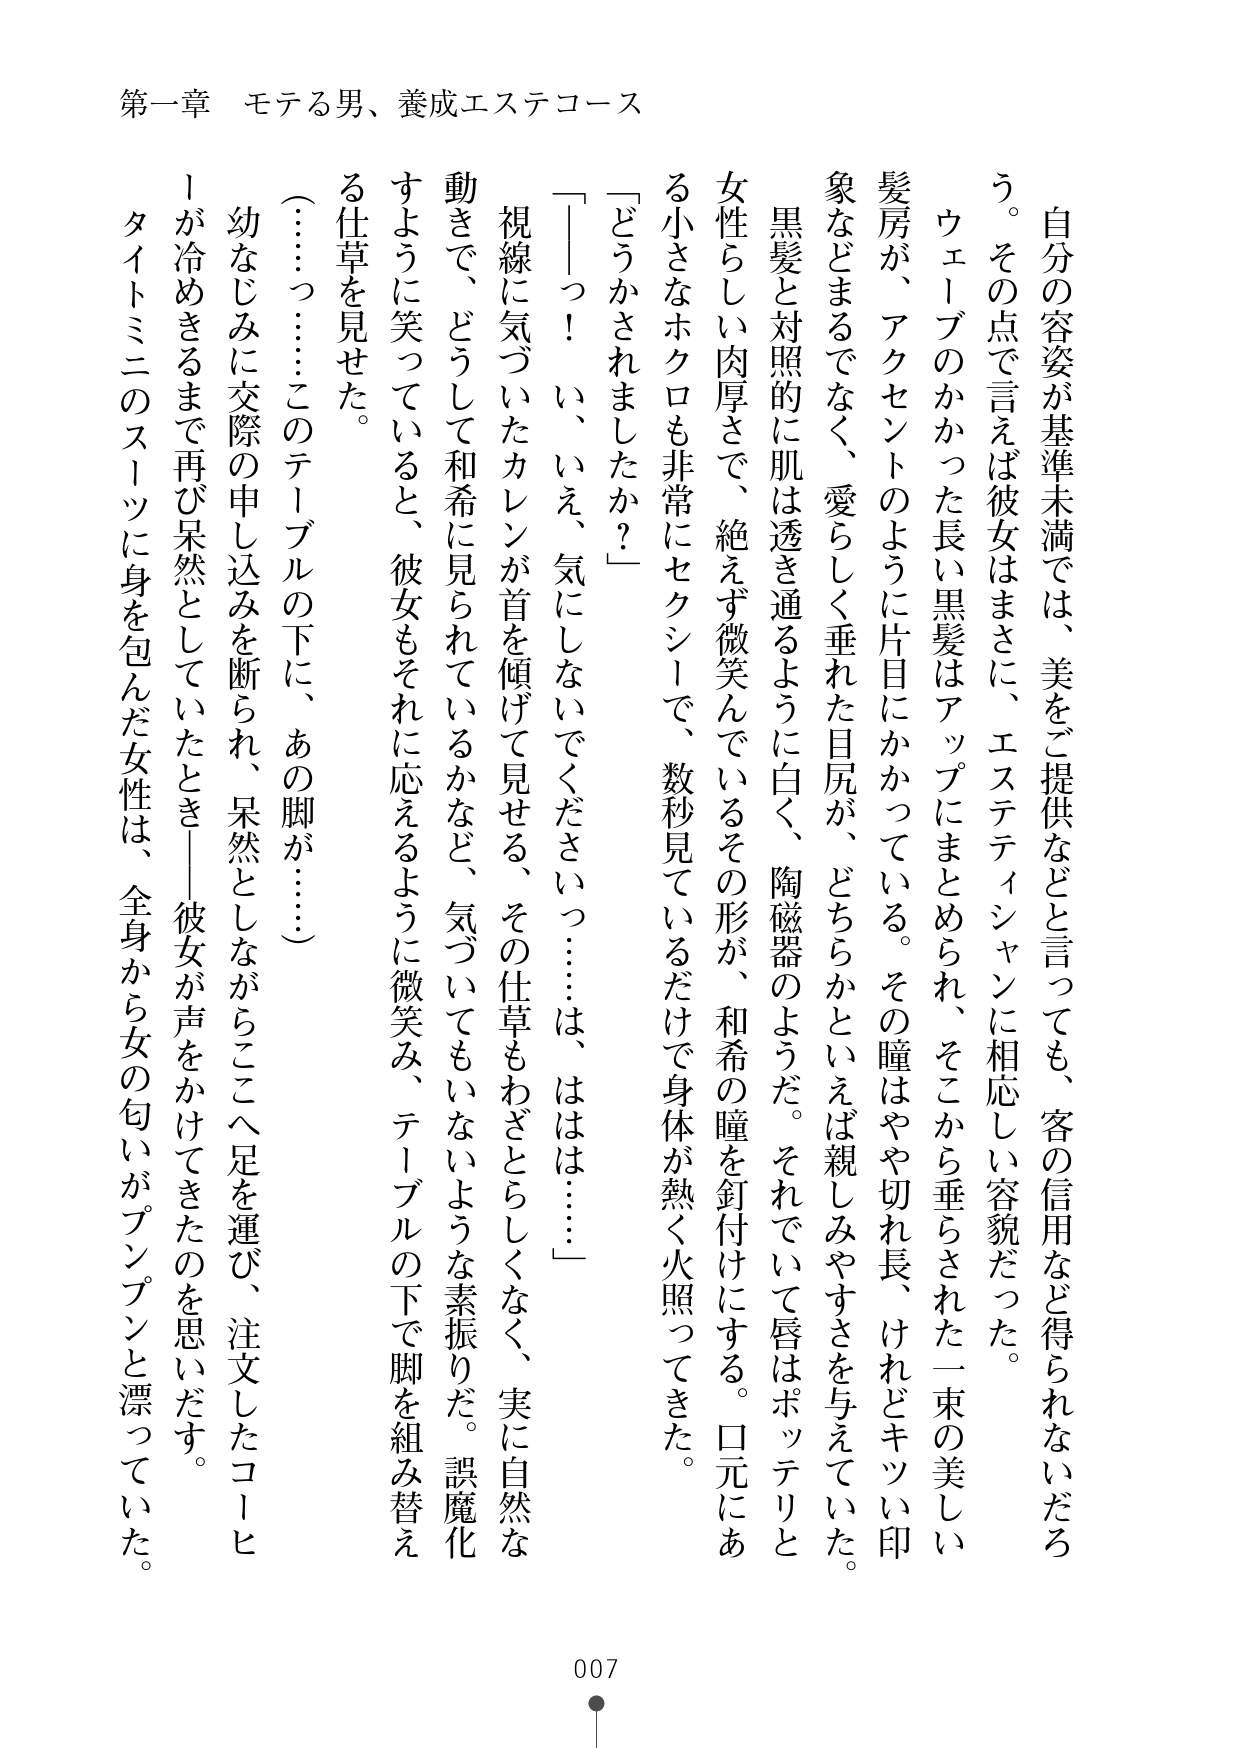 第一章　モテる男、養成エステコース
　自分の容姿が基準未満では、美をご提供などと言っても、客の信用など得られないだろ
う。その点で言えば彼女はまさに、エステティシャンに相応しい容貌だった。
　ウェーブのかかった長い黒髪はアップにまとめられ、そこから垂らされた一束の美しい
髪房が、アクセントのように片目にかかっている。その瞳はやや切れ長、けれどキツい印
象などまるでなく、愛らしく垂れた目尻が、どちらかといえば親しみやすさを与えていた。
　黒髪と対照的に肌は透き通るように白く、陶磁器のようだ。それでいて唇はポッテリと
女性らしい肉厚さで、絶えず微笑んでいるその形が、和希の瞳を釘付けにする。口元にあ
る小さなホクロも非常にセクシーで、数秒見ているだけで身体が熱く火照ってきた。
「どうかされましたか？」
「――っ！　い、いえ、気にしないでくださいっ……は、ははは……」
　視線に気づいたカレンが首を傾げて見せる、その仕草もわざとらしくなく、実に自然な
動きで、どうして和希に見られているかなど、気づいてもいないような素振りだ。誤魔化
すように笑っていると、彼女もそれに応えるように微笑み、テーブルの下で脚を組み替え
る仕草を見せた。
（……っ……このテーブルの下に、あの脚が……）
　幼なじみに交際の申し込みを断られ、呆然としながらここへ足を運び、注文したコーヒ
ーが冷めきるまで再び呆然としていたとき――彼女が声をかけてきたのを思いだす。
　タイトミニのスーツに身を包んだ女性は、全身から女の匂いがプンプンと漂っていた。
007